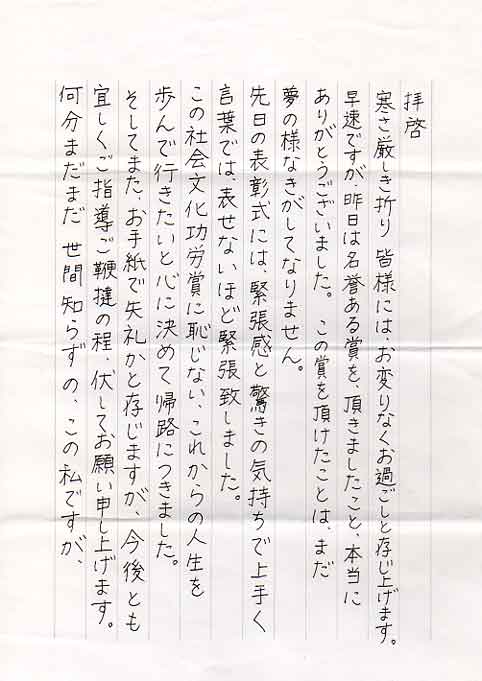 拝啓
寒さ厳しき折り 皆様には、お変りなくお過ごしと存じ上げます。
早速ですが、昨日は名誉ある賞を、頂きましたこと、本当に
ありがとうございました。この賞を頂けたことは、まだ
夢の様なきがしてなりません。
先日の表彰式には、緊張感と驚きの気持ちで上手く
言葉では、表せないほど緊張致しました。
この社会文化功労賞に恥じない、これからの人生を
歩んで行きたいと心に決めて帰路につきました。
そしてまた、お手紙で失礼かと存じますが、今後とも
宜しくご指導ご鞭撻の程、伏してお願い申し上げます。
何分まだまだ 世間知らずの、この私ですが、